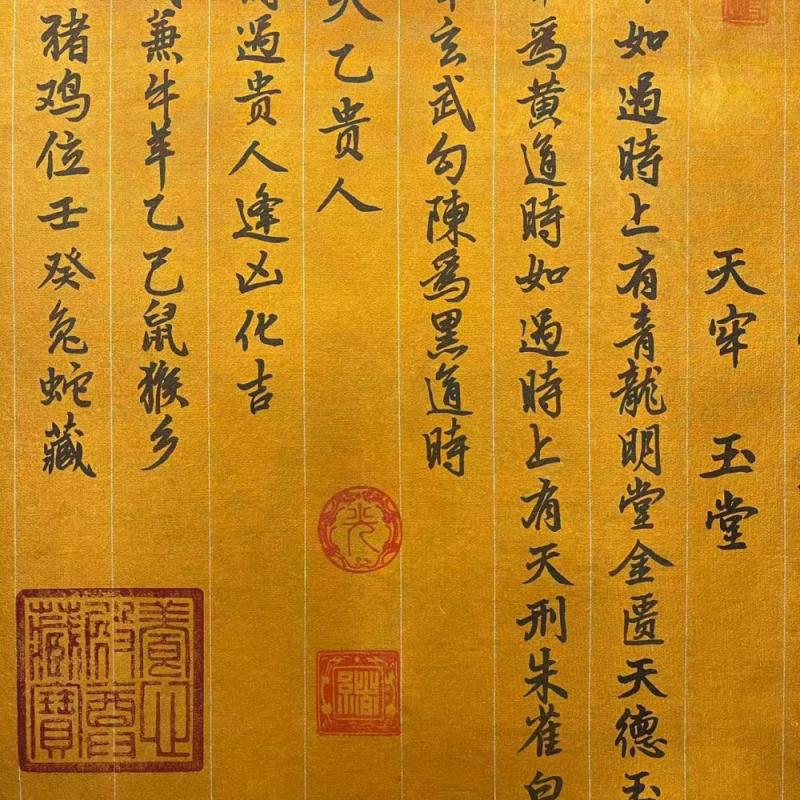 天牢 玉堂
如過時上有青龍明堂金匱天德玉
爲黃道時如過時上有天刑朱雀白
玄武勾陳爲黑道時
天乙贵人
過贵人逢凶化吉
兼牛羊乙己鼠猴乡
猪鸡位壬癸兔蛇藏